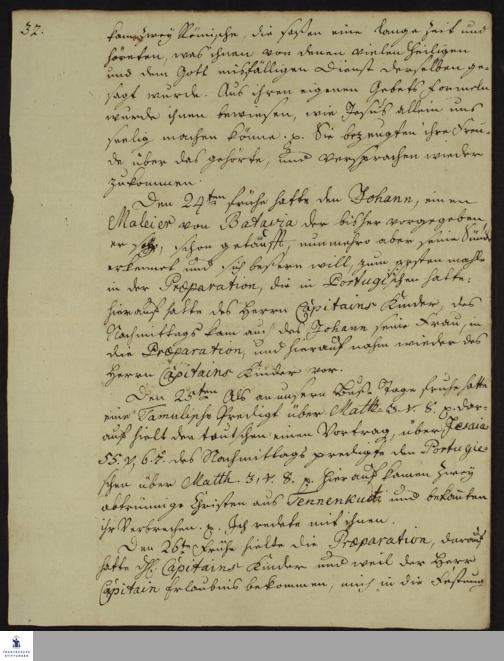 32.
kamen zwey Römische, die saßen eine lange Zeit und
höreten, was ihnen von denen vielen Heiligen
und dem Gott mißfälligen Dienst derselben ge-
sagt wurde. Aus ihren eigenen Gebets formeln
wurde ihnen bewiesen, wie Jesus allein uns
seelig machen könne. p. Sie bezeugten ihre Freu-
de über das gehörte, und versprachen wieder
zukommen.
Den 24ten frühe hatte den Johann, einen
Maleier von Batavia der bisher vorgegeben
er sey, schon getaufft, nunmehro aber seine Sünde
erkennet und sich beßern will, zum ersten mahle
in der Præparation, die in Portugischen hatte.
hierauf hatte des Herrn Capitains Kinder, des
Nachmittags kam auch des Johann seine Frau, in
die Præparation, und hierauf nahm wieder des
Herrn Capitains Kinder vor.
Den 25ten Als an unserm Buß Tage frühe hatte
eine Tamulische Predigt über Matth. 3. v. 8. p. dar-
auf hielt den teutschen einen Vortrag, über Jesaia
55. v. 6. 7. des Nachmittags predigte den Portugie-
schen über Matth. 3. v. 8. p. hierauf kamen zwey
abtrünnige Christen aus Tennenkudi und bekanten
ihr Verbrechen. p. Ich redete mit ihnen.
Den 26ten frühe hielte die Præparation, darauf
hatte Capitains Kinder und weil der Herr
Capitain Erlaubnis bekommen, mich in die Festung
FRANCKESCHE
STIFTUNGEN